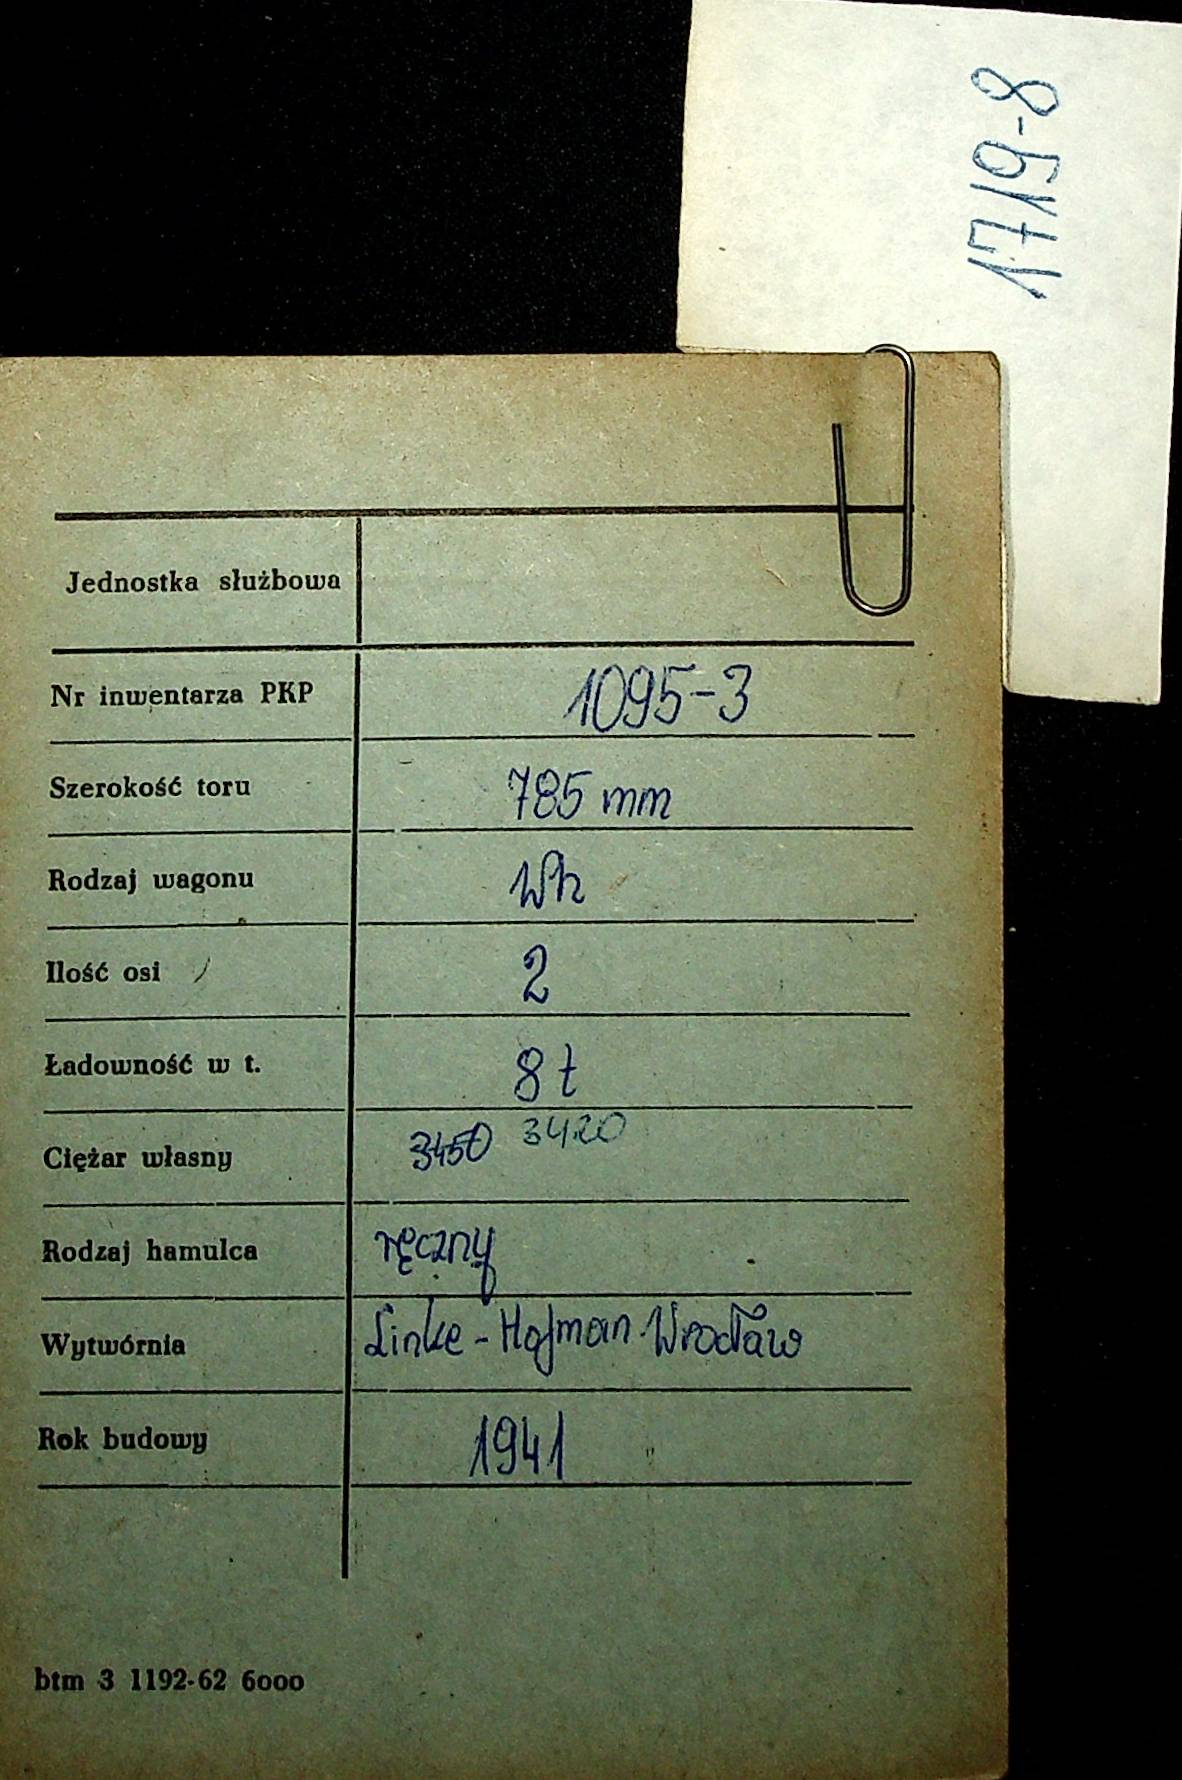 1719-8
Jednostka służbowa
Nr inwentarza PKP 1095-3
Szerokość toru 785 mm
Rodzaj wagonu Wh
Ilość osi 2
Ładowność w t. 8 t
Ciężar własny 3450 3420
Rodzaj hamulca ręczny
Wytwórnia Linke-Hofman Wrocław
Rok budowy 1941
btm 3 1192-62 6000